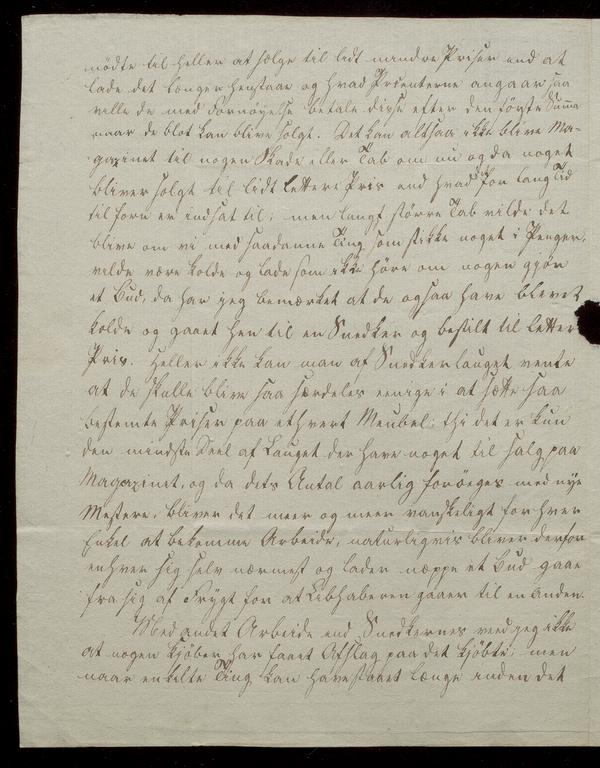 mödte til heller at sælge til lidt mindre Priser end at
lade det længer henstaae og hvad Procenterne angaar saa
ville de med Fornöyelse betale disse efter den förste Summa
naar de blot kan blive solgt. Det kan altsaa ikke blive Ma-
gazinet til nogen Skade eller Tab om nu og da noget
bliver solgt til lidt lettere Pris end hvad det for lang Tid
til forn er indsat til; men langt större Tab vilde det
blive om vi med saadanne Ting som stikke noget i Penger,
vilde være kolde og lade som ikke höre om nogen gjör
et Bud, da har jeg bemærket at de ogsaa have blevet
kolde og gaaet hen til en Snedker og bestilt til lettere
Pris. Heller ikke kan man af Snedkerlauget vente
at de skulle blive saa særdeles eenige i at sætte saa
bestemte Priser paa ethvert Meubel; thi det er kun
den mindste Deel af Lauget der have noget til salg paa
Magazinet, og da dets Antal aarlig foröges med nye
Mestere, bliver det meer og meer vanskeligt for hver
Enkel at bekomme Arbeide, naturligvis bliver derfor
enhver sig selv nærmest og lader næppe et Bud gaae
fra sig af Frygt for at Liebhaberen gaaer til en anden.
Med andet Arbeide end Snedkernes veed jeg ikke
at nogen Kjöber har faaet Afslag paa det kjöbte; men
naar enkelte Ting kan have staaet længe inden det